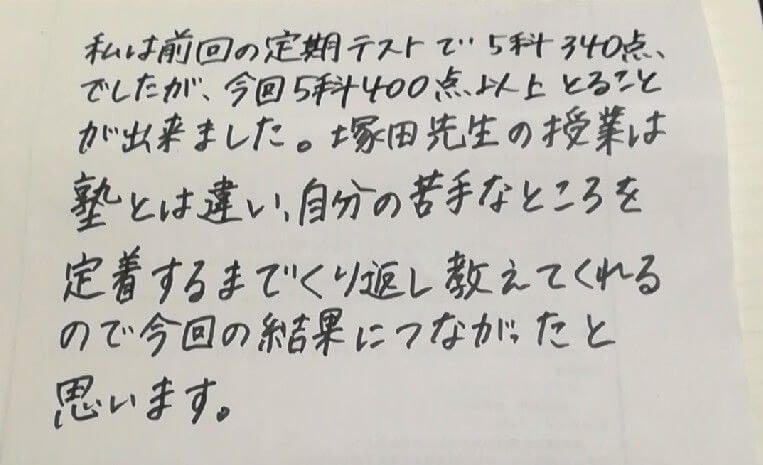 私は前回の定期テストで5科340点、
でしたが、今回5科400点以上とること
が出来ました。塚田先生の授業は
塾とは違い、自分の苦手なところを
定着するまでくり返し教えてくれる
ので今回の結果につながったと
思います。